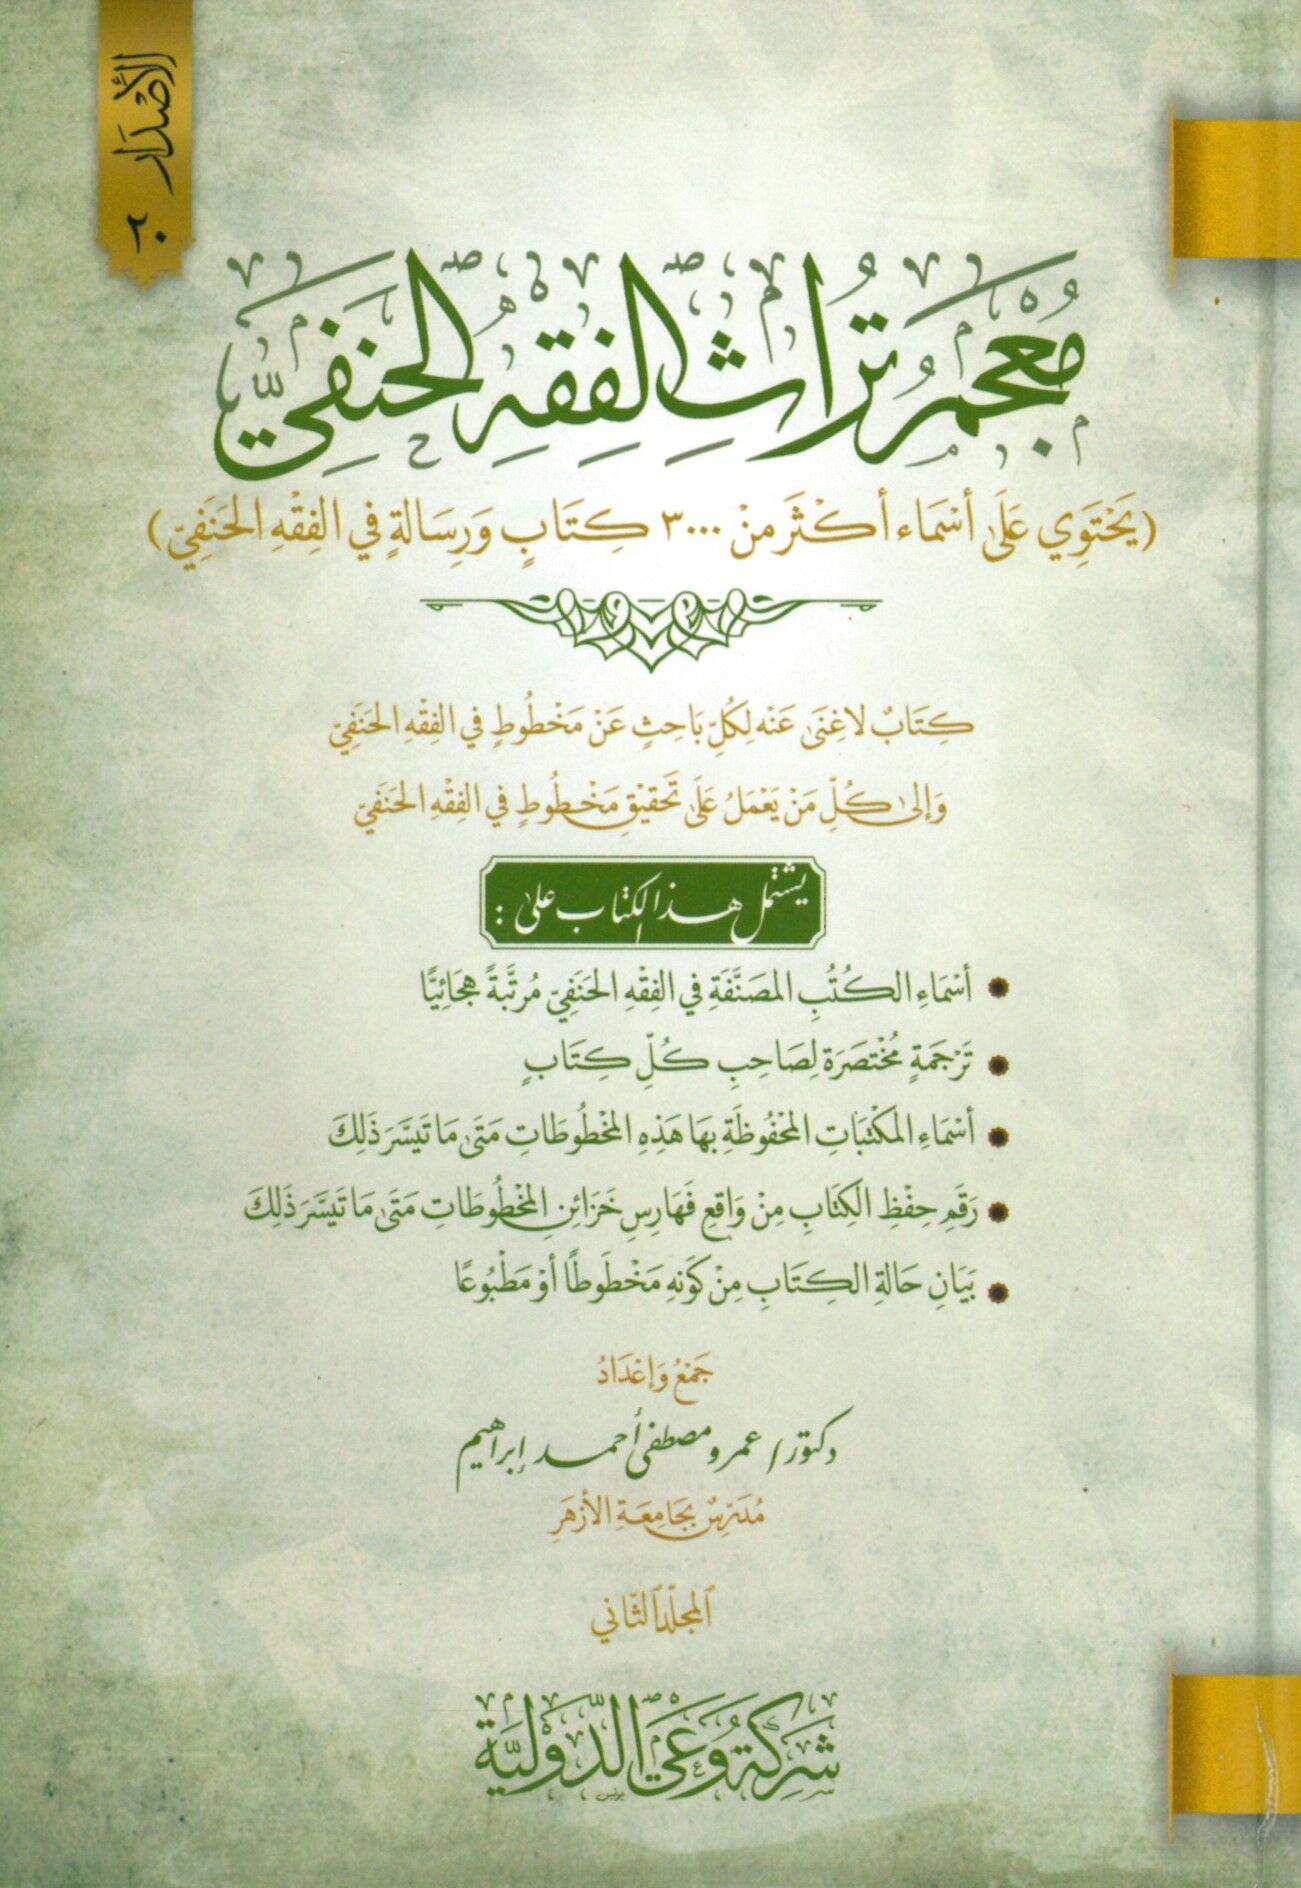 الأصدار ٢٠
مُعْجَمُ تُرَاثِ الفِقْهِ الحَنَفِيِّ
(يَحْتَوِي عَلَى أَسْمَاء أَكْثَر مِنْ ٣٠٠٠ كِتَابٍ وَرِسَالةٍ في الفِقْهِ الحَنَفِيّ)
كِتَابٌ لا غِنَى عَنْه لِكُلِّ بَاحِثٍ عَنْ مَخْطُوطٍ في الفِقْهِ الحَنَفِيّ
وَإلى كُلِّ مَنْ يَعْمَلُ عَلَى تَحقِيْقِ مَخْطُوطٍ في الفِقْهِ الحَنَفيّ
يشتمل هذا الكتاب على :
أَسْمَاءِ الكُتُبِ المصَنَّفَةِ في الفِقْهِ الحَنَفِيّ مُرتَّبَةً هجَائِيًّا
تَرْجَمَةٍ مُخْتصَرَة لِصَاحِبِ كُلِّ كِتَابٍ
أَسْمَاءِ المَكْتبَاتِ المَحْفُوظَةِ بهَا هَذِهِ المخْطُوطَاتِ مَتَى مَا تَيسَّرَ ذَلِكَ
رَقَمِ حِفْظِ الكِتَابِ مِنْ وَاقعِ فَهَارِسِ خَزَائِنِ المخْطُوطَاتِ مَتَى مَا تَيسَّرَ ذَلِكَ
بَيَانِ حَالةِ الكِتَابِ مِنْ كَوْنهِ مَخْطُوطًا أَوْ مَطْبُوعًا
جَمْعُ وَإعْدَادُ
دكتور/ عمرو مصطفى أحمد إبراهيم
مُدَرِّسٌ بجَامِعَةِ الأَزهَرِ
المجلّد الثّاني
شَرِكَةُ وَعْيِ الدَّوْلِيَّةِ